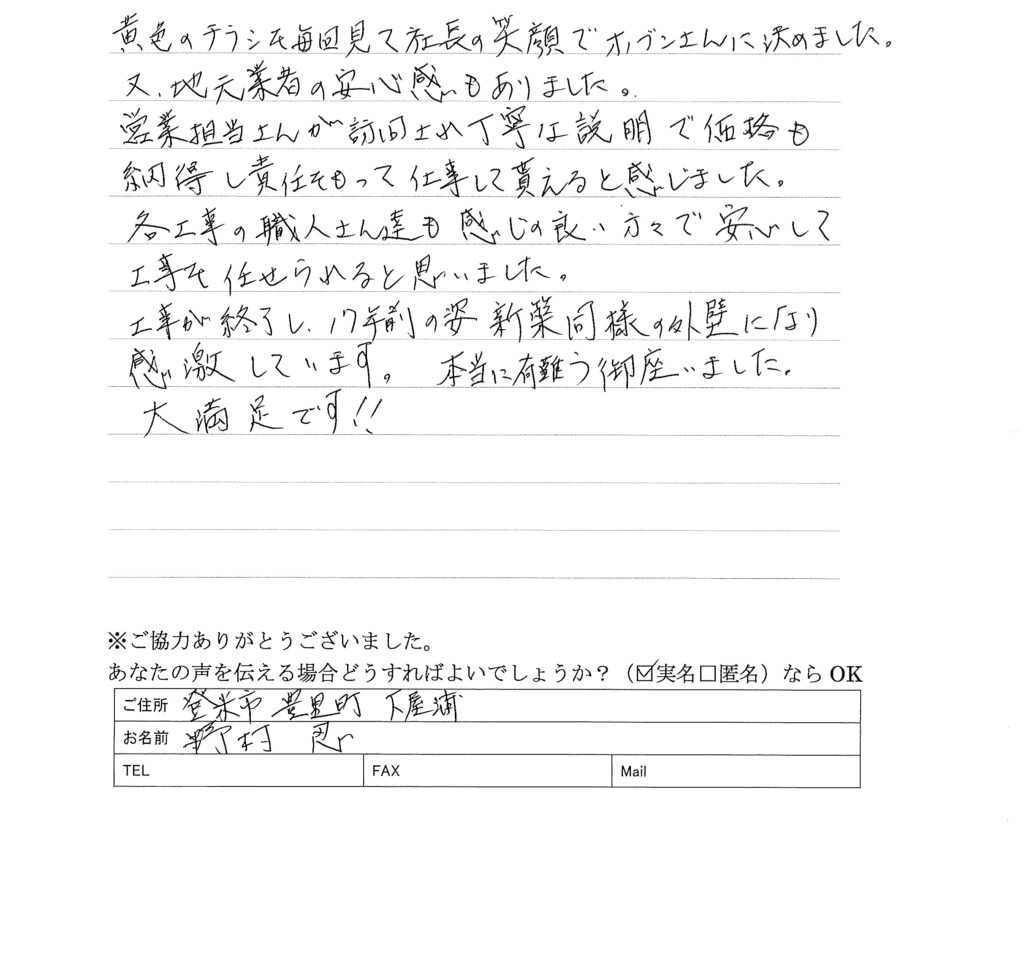 黄色のチラシを毎回見て社長の笑顔でホブンさんに決めました。
又、地元業者の安心感もありました。
営業担当さんが訪問され丁寧な説明で価格も
納得し責任をもって仕事して貰えると感じました。
各工事の職人さん達も感じの良い方々で安心して
工事を任せられると思いました。
工事が終了し、17年前の姿新築同様の外壁になり
感激しています。 本当に有難う御座いました。
大満足です!!
※ご協力ありがとうございました。
あなたの声を伝える場合どうすればよいでしょうか？（☑実名□匿名）なら OK
ご住所 登米市 豊里町 下屋浦
お名前 野村 忍
TEL FAX Mail